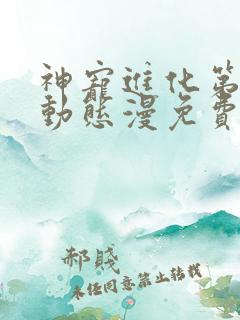 神寵進化第
動態漫免費
郝賤
未经同意禁止转载